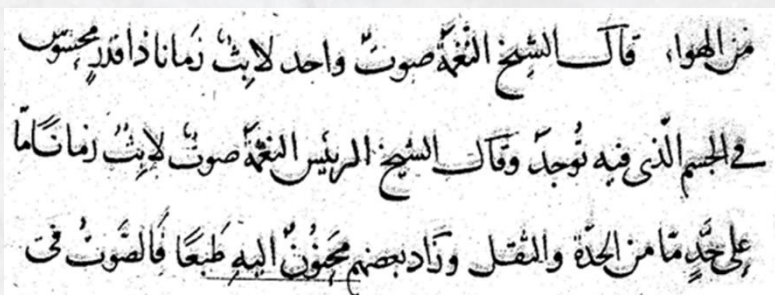 من الهواء قال الشيخ النغمة صوتٌ واحد لابثٌ زمانا ذا قدرٍ محسوس
في الجسم الّذى فيه تُوجدّ وقال الشيخ الرئيس النغمة صوتٌ لابثٌ زمانًا مّا
على حَّدٍ مّا من الحدّة والثقل وزاد بعضهم محنُوُنٌ اليهِ طبعًا فَالصَّوتُ في